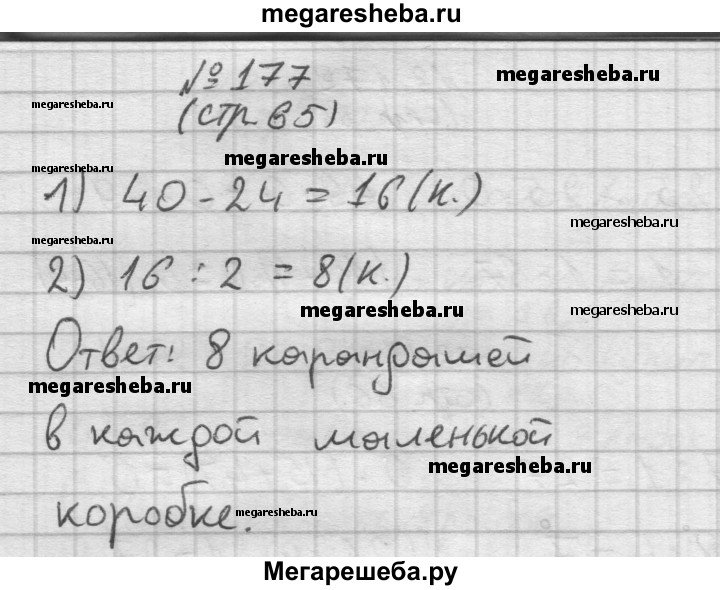 megaresheba.ru
№ 177
megaresheba.ru
megaresheba.ru
(стр 65)
megaresheba.ru
megaresheba.ru
1) 40 - 24 = 16 (к.)
megaresheba.ru
megaresheba.ru
2) 16 : 2 = 8 (к.)
megaresheba.ru
megaresheba.ru
Ответ: 8 карандашей
megaresheba.ru
в каждой маленькой
megaresheba.ru
коробке.
megaresheba.ru
Мегарешеба.ру